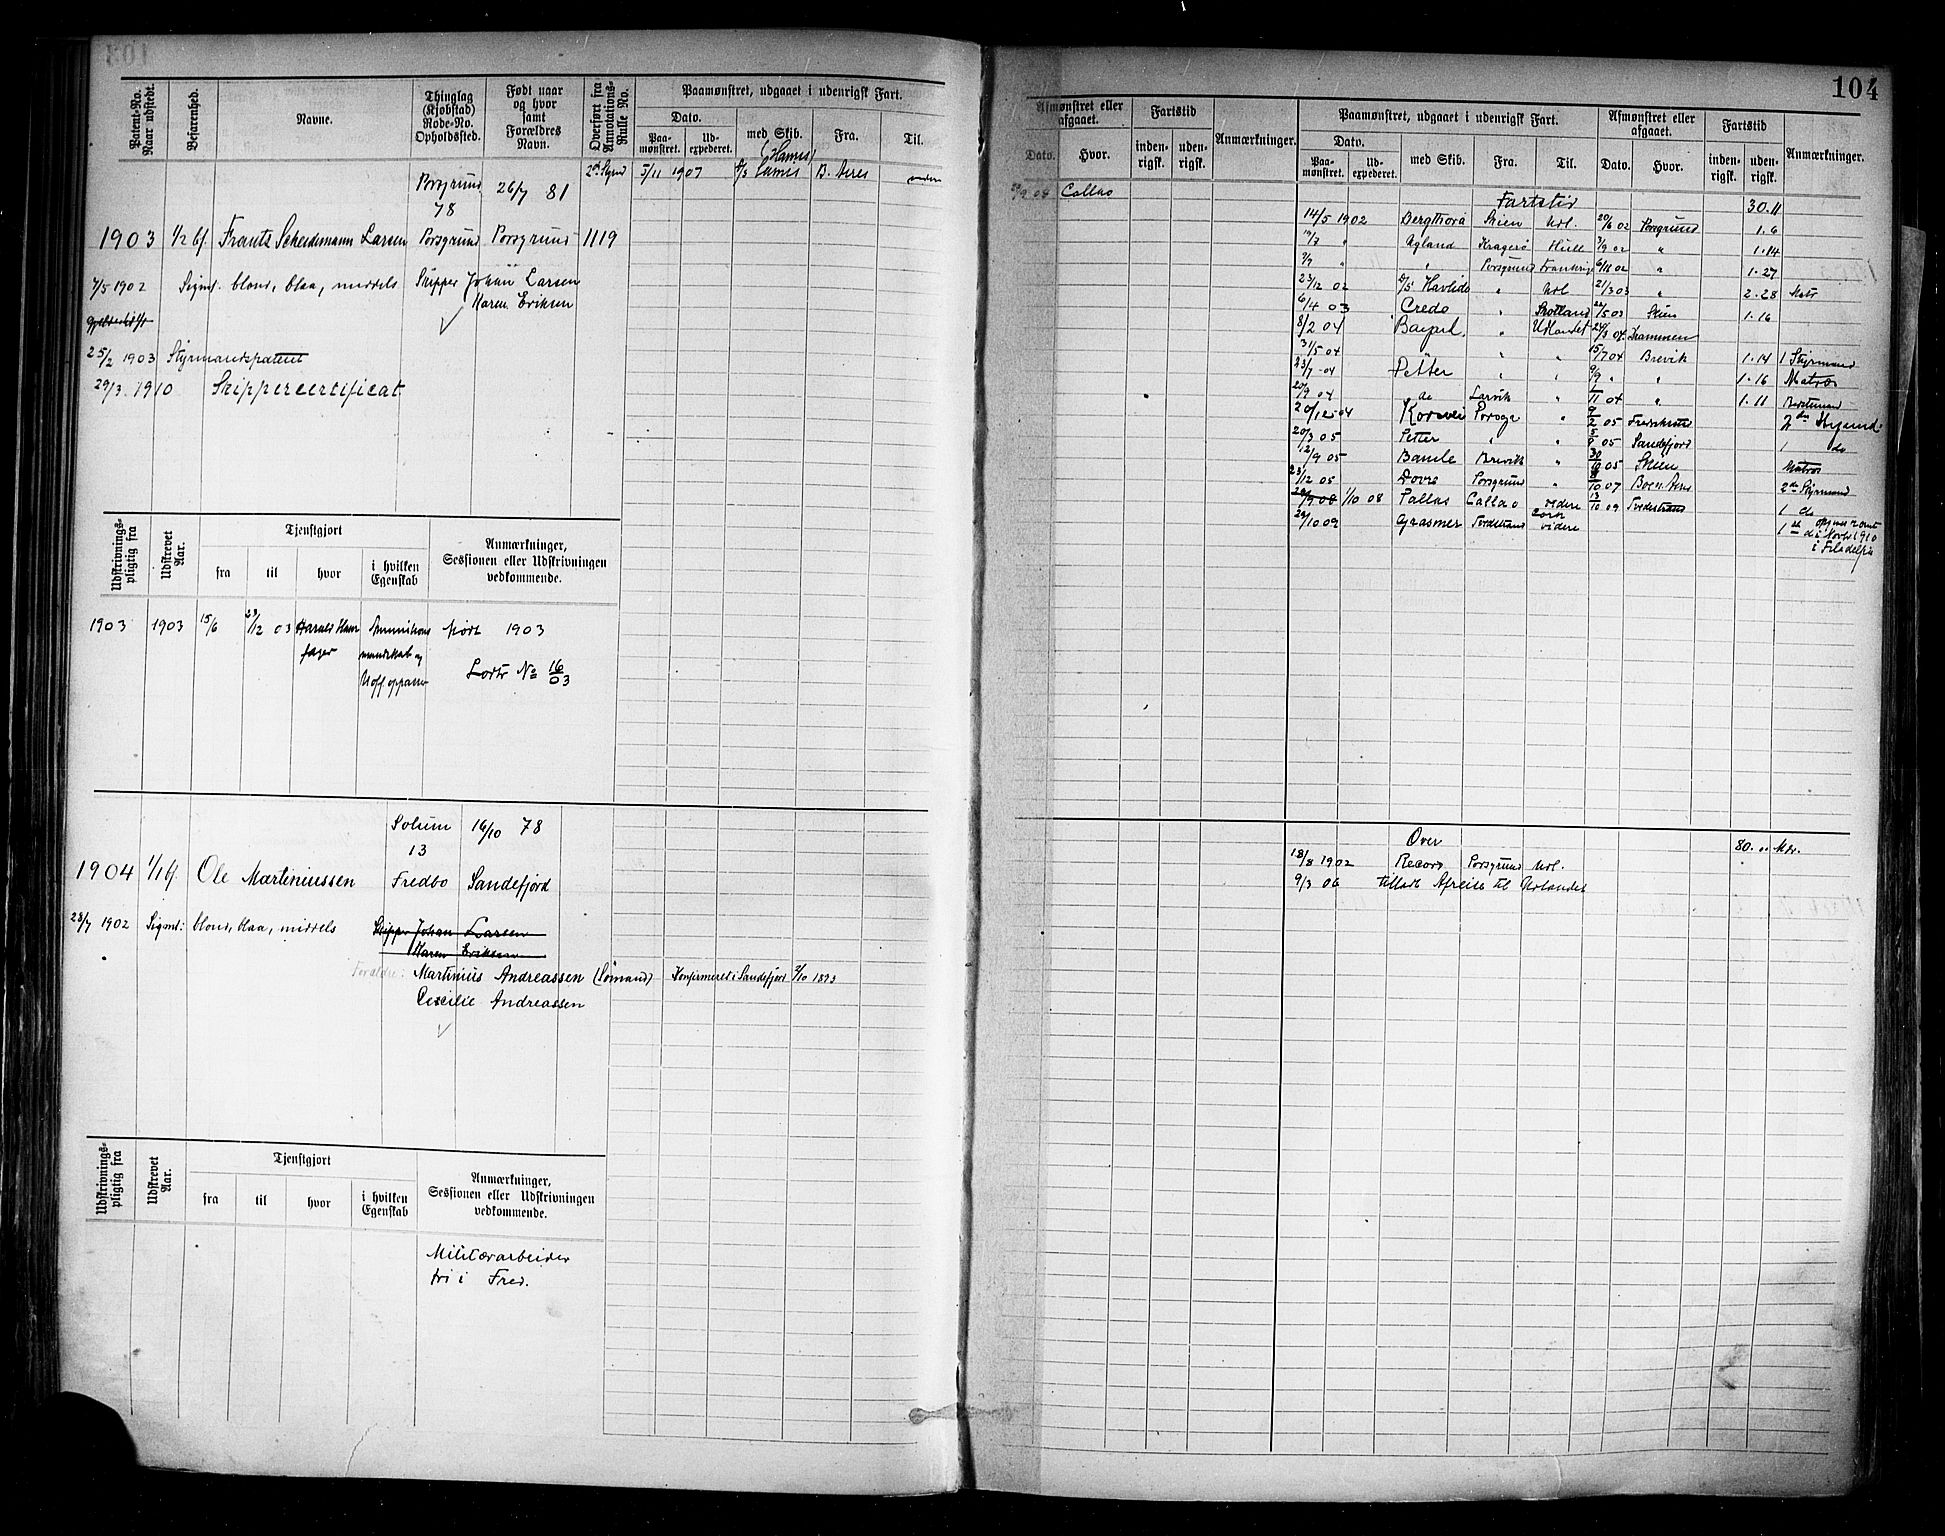 104
Patent-No. Naar udstedt.
Befarenhed.
Navne.
Thinglag (Kjøbstad) Rode-No. Opholdssted.
Født naar og hvor samt Forældres Navn.
Overført fra Annotations-Rulle No.
Paamønstret, udgaaet i udenrigsk Fart.
Dato.
Paa-mønstret.
Ud-expederet.
med Skib.
Fra.
Til.
Afmønstret eller afgaaet.
Dato.
Hvor.
Fartstid
inden-rigsk.
uden-rigsk.
Anmærkninger.
Paamønstret, udgaaet i udenrigsk Fart.
Dato.
Paa-mønstret.
Ud-expederet.
med Skib.
Fra.
Til.
Afmønstret eller afgaaet.
Dato.
Hvor.
Fartstid
inden-rigsk.
uden-rigsk.
Anmærkninger.
Porsgrund 26/7 81 5/11 1907 B. Aires
78
1903 1/2 bf. Frants Scheidemann Larsen Porsgrund Porsgrund 1119
7/5 1902 Signt. blond, blaa, middels Skipper Johan Larsen
Maren Eriksen
25/2 1903 Styrmandspatent
29/3 1910 Skippercertificat
Callao
Fartstid 30.11
14/5 1902 Bergthora Skien Udl. 20/6 02 Porsgrund 1.6
19/7 " Agland Kragerø Hull 3/9 02 " 1.14
7/9 " " Porsgrund Frankrige 02 " 1.27
23/12 02 Havlide " Udl 21/3 03 " 2.28 Matr
6/4 03 Credo " Skotland 22/5 03 Skien 1.16
8/2 04 " Udlandet
31/5 04 " " 15/7 04 Brevik 1.14 1 Styrmand
23/7 04 Petter " " 9/9 " " 1.16 Matros
20/9 04 do Larvik " 1/11 04 " 1.11
20/12 04 Korsvei Porsgr " 9/2 05 2den Styrmd.
20/3 05 Petter " " 5/9 05 Sandefjord 1 do
12/9 05 Bamle Brevik " 30/10 05 Skien Matros
23/12 05 Dovre Porsgrund " 10 07 Buen. Aires 2den Styrmand
1/10 08 Pallas Callao videre 13/10 09 Tvedestrand 1 do
29/10 09 Grasmer Tvedestrand videre
Udskrivnings-pligtig fra
Udskrevet Aar.
Tjenstgjort
fra
til
hvor
i hvilken Egenskab
Anmærkninger, Sessionen eller Udskrivningen vedkommende.
1903 1903 15/6 23/12 03 Harald Haar- Mødt 1903
fager mandskab og
Uoff. oppasser No 16/03
Solum 16/10 78
13
1904 1/1 bf. Ole Martiniussen Fredbo Sandefjord
28/7 1902 Signt: blond, blaa, middels Skipper Johan Larsen
Maren Eriksen
Forældre: Martinius Andreassen (Sømand) Konfirmeret i Sandefjord 2/10 1893
Cecilie Andreassen
Over 80. " Mdr.
18/8 1902 Record Porsgrund Udl.
9/3 06 tilladt Afreise til Udlandet
Udskrivnings-pligtig fra
Udskrevet Aar.
Tjenstgjort
fra
til
hvor
i hvilken Egenskab
Anmærkninger, Sessionen eller Udskrivningen vedkommende.
Militærarbeider
fri i Fred.